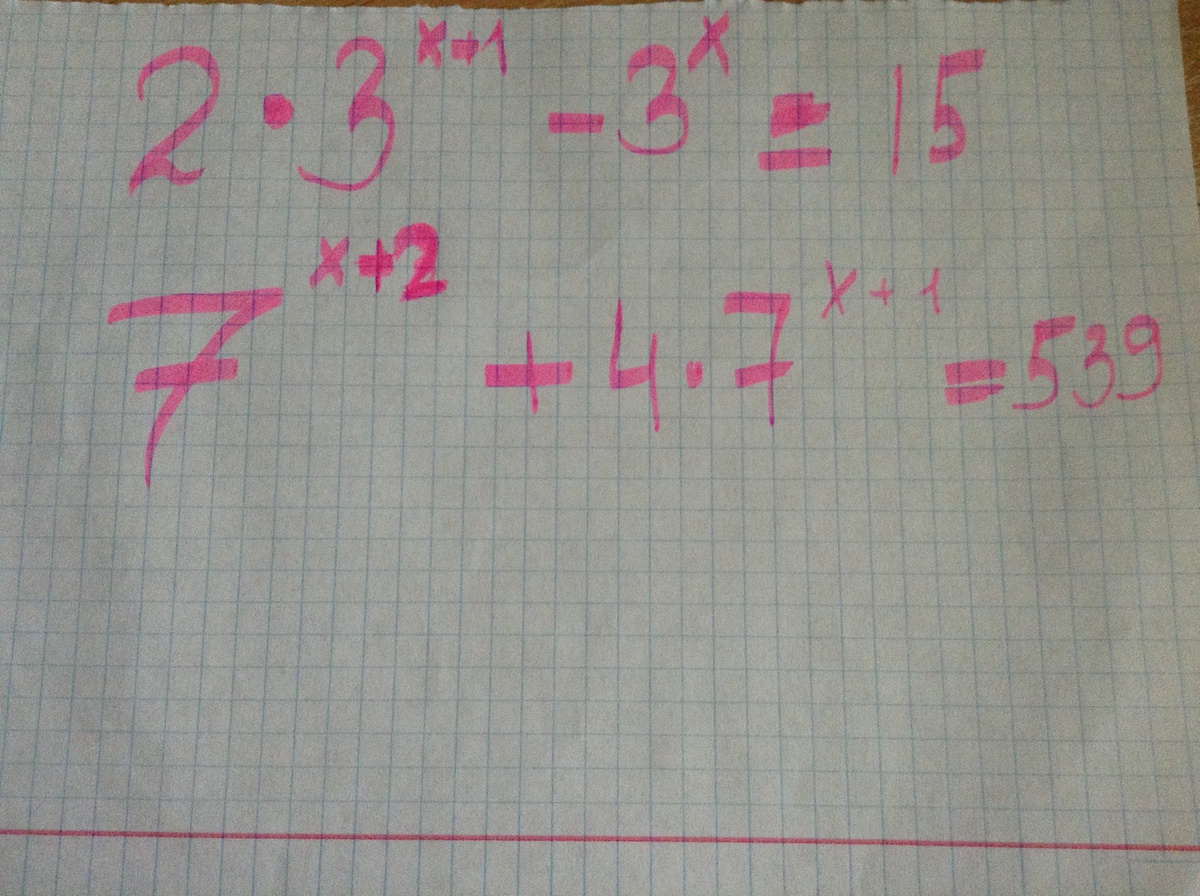 2 · 3^{x+1} - 3^x = 15
7^{x+2} + 4 · 7^{x+1} = 539